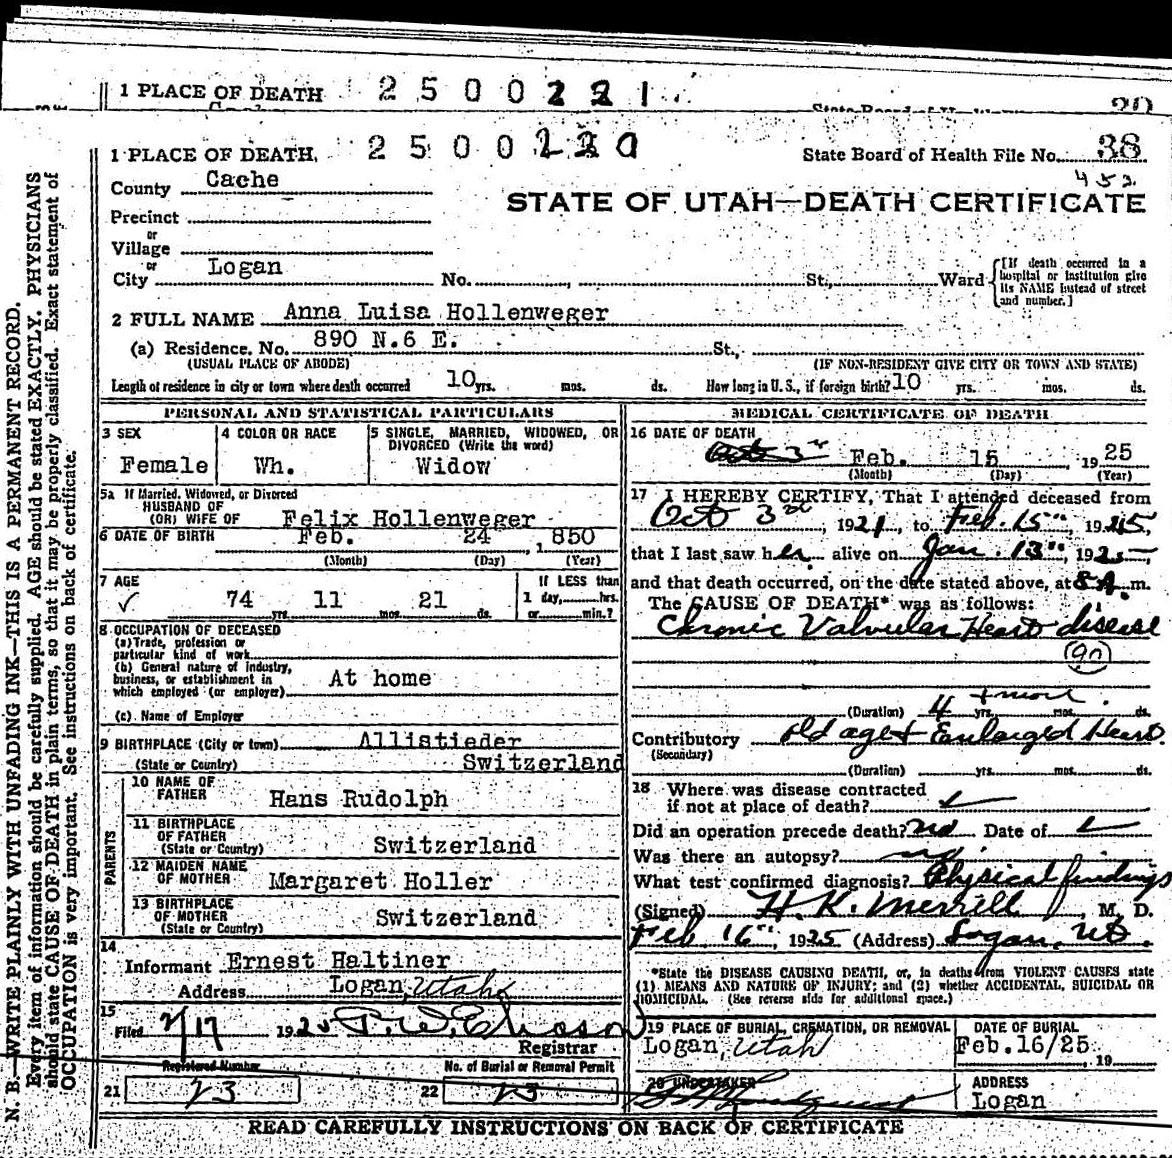 1 PLACE OF DEATH 2500221
1 PLACE OF DEATH, 2500220 State Board of Health File No. 38
452
County Cache
STATE OF UTAH—DEATH CERTIFICATE
Precinct
or
Village
or
City Logan No. , St., Ward
[If death occurred in a hospital or institution give its NAME instead of street and number.]
2 FULL NAME Anna Luisa Hollenweger
(a) Residence. No. 890 N.6 E. St.,
(USUAL PLACE OF ABODE) (IF NON-RESIDENT GIVE CITY OR TOWN AND STATE)
Length of residence in city or town where death occurred 10 yrs. mos. ds. How long in U. S., if foreign birth? 10 yrs. mos. ds.
PERSONAL AND STATISTICAL PARTICULARS
3 SEX
Female
4 COLOR OR RACE
Wh.
5 SINGLE, MARRIED, WIDOWED, OR DIVORCED (Write the word)
Widow
5a If Married, Widowed, or Divorced
HUSBAND OF
(OR) WIFE OF Felix Hollenweger
6 DATE OF BIRTH Feb. 24 , 1850
(Month) (Day) (Year)
7 AGE
74 yrs. 11 mos. 21 ds.
If LESS than
1 day, hrs.
or min.?
8 OCCUPATION OF DECEASED
(a) Trade, profession or
particular kind of work
(b) General nature of industry,
business, or establishment in
which employed (or employer) At home
(c) Name of Employer
9 BIRTHPLACE (City or town) Allistieder
(State or Country) Switzerland
PARENTS
10 NAME OF
FATHER Hans Rudolph
11 BIRTHPLACE
OF FATHER
(State or Country) Switzerland
12 MAIDEN NAME
OF MOTHER Margaret Holler
13 BIRTHPLACE
OF MOTHER
(State or Country) Switzerland
14
Informant Ernest Haltiner
Address Logan, Utah
15
Filed 2/17 1925
Registrar
Registered Number No. of Burial or Removal Permit
21 23 22 23
MEDICAL CERTIFICATE OF DEATH
16 DATE OF DEATH
Oct 3rd Feb. 15 , 1925
(Month) (Day) (Year)
17 I HEREBY CERTIFY, That I attended deceased from
Oct 3rd , 1921 , to Feb. 15th , 1925,
that I last saw her alive on Jan. 13th , 1925
and that death occurred, on the date stated above, at 8 A. m.
The CAUSE OF DEATH* was as follows:
Chronic Valvular Heart disease
(90)
+ more
(Duration) 4 yrs. mos. ds.
Contributory old age + Enlarged Heart.
(Secondary)
(Duration) yrs. mos. ds.
18 Where was disease contracted
if not at place of death?
Did an operation precede death? no Date of
Was there an autopsy? no
What test confirmed diagnosis? Physical findings
(Signed) H. K. Merrill , M. D.
Feb 16th, 1925 (Address) Logan, Ut.
*State the DISEASE CAUSING DEATH, or, in deaths from VIOLENT CAUSES state
(1) MEANS AND NATURE OF INJURY; and (2) whether ACCIDENTAL, SUICIDAL OR
HOMICIDAL. (See reverse side for additional space.)
19 PLACE OF BURIAL, CREMATION, OR REMOVAL
Logan, Utah
DATE OF BURIAL
Feb.16/25 19
20 UNDERTAKER
ADDRESS
Logan
READ CAREFULLY INSTRUCTIONS ON BACK OF CERTIFICATE
N. B.—WRITE PLAINLY WITH UNFADING INK—THIS IS A PERMANENT RECORD.
Every item of information should be carefully supplied. AGE should be stated EXACTLY. PHYSICIANS
should state CAUSE OF DEATH in plain terms, so that it may be properly classified. Exact statement of
OCCUPATION is very important. See instructions on back of certificate.